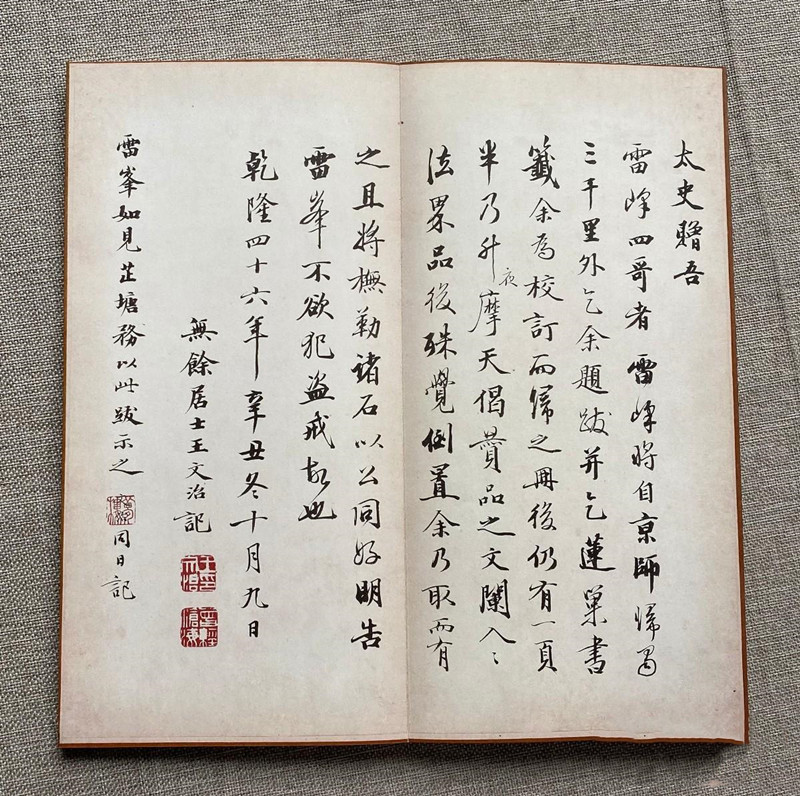 太史贈吾
雷峰四哥者雷峰將自京師歸蜀
三千里外乞余題跋并乞蓮巢書
籤余為校訂而歸之冊後仍有一頁
半乃升夜摩天偈贊品之文闌入〻
法界品後殊覺倒置余乃取而有
之且將橅勒諸石以公同好明告
雷峯不欲犯盜戒故也
乾隆四十六年辛丑冬十月九日
無餘居士王文治記
王文治印
曾經滄海
雷峯如見芷塘務以此跋示之 同日記